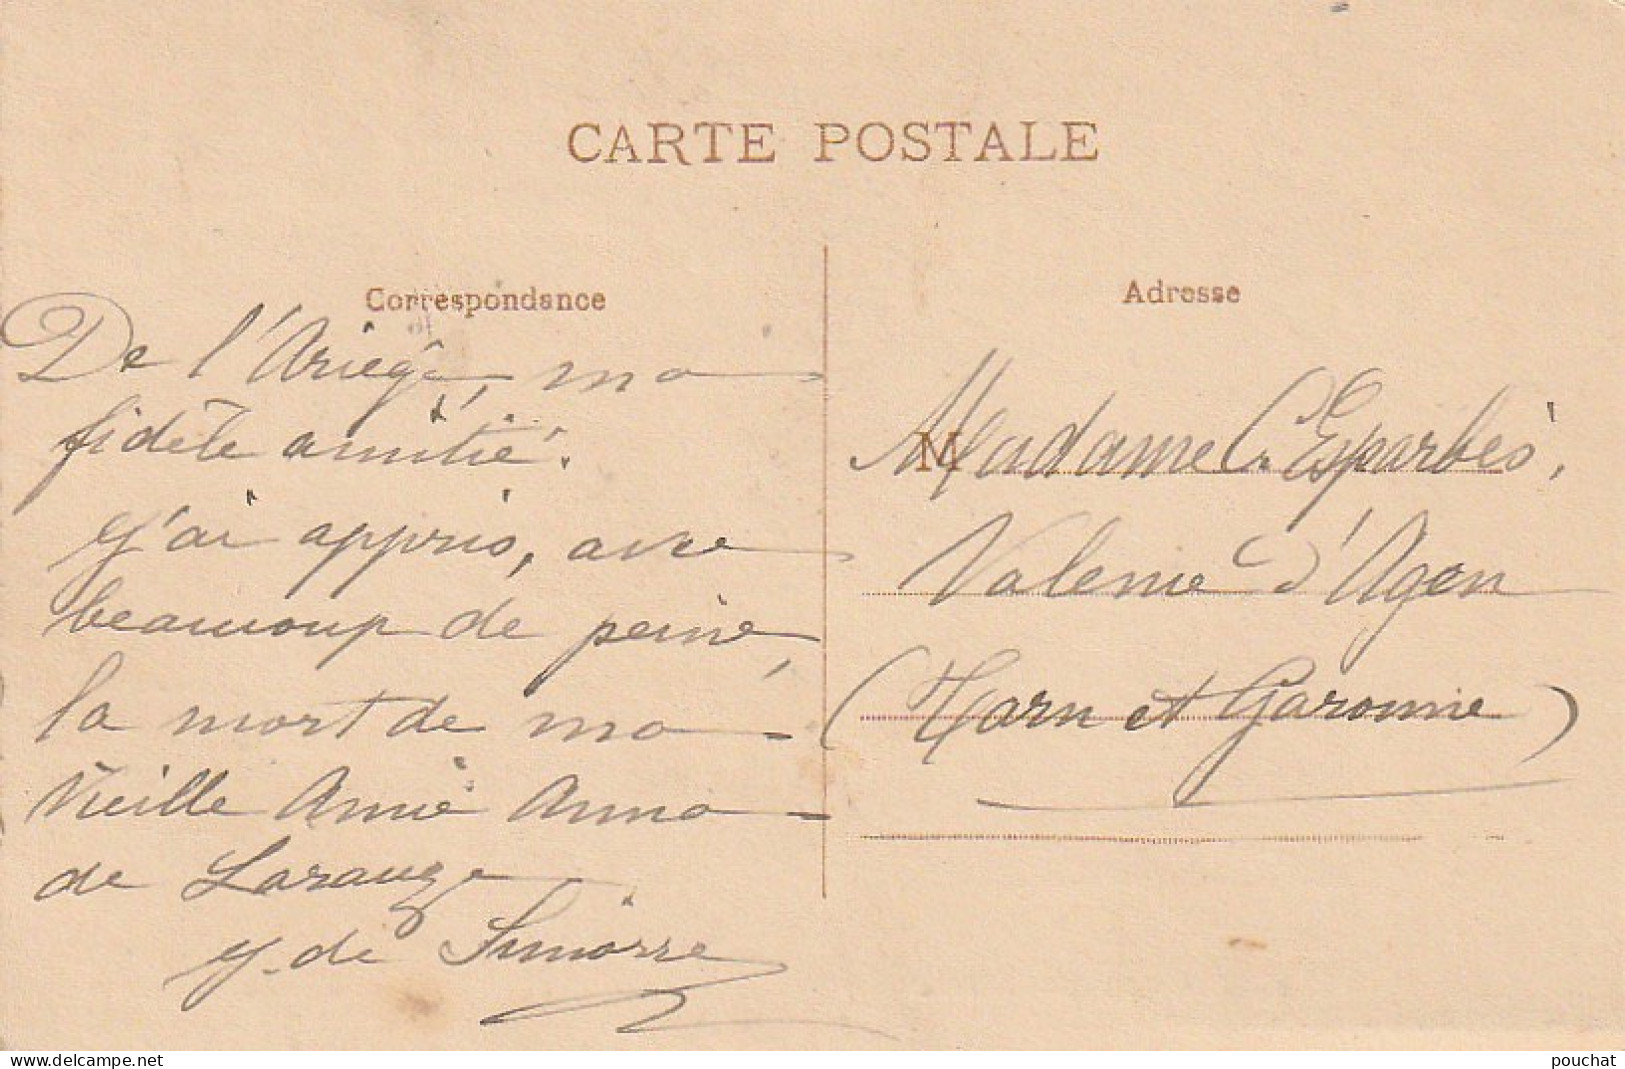 CARTE POSTALE
Correspondance
De l'Ariège, ma
fidèle amitié.
J'ai appris, avec
beaucoup de peine,
la mort de ma
Vieille Amie Anna
de Larauze
Y. de Simorre
Adresse
M
Madame C. Esparbès,
Valence d'Agen
(Tarn et Garonne)
www.delcampe.net
pouchat